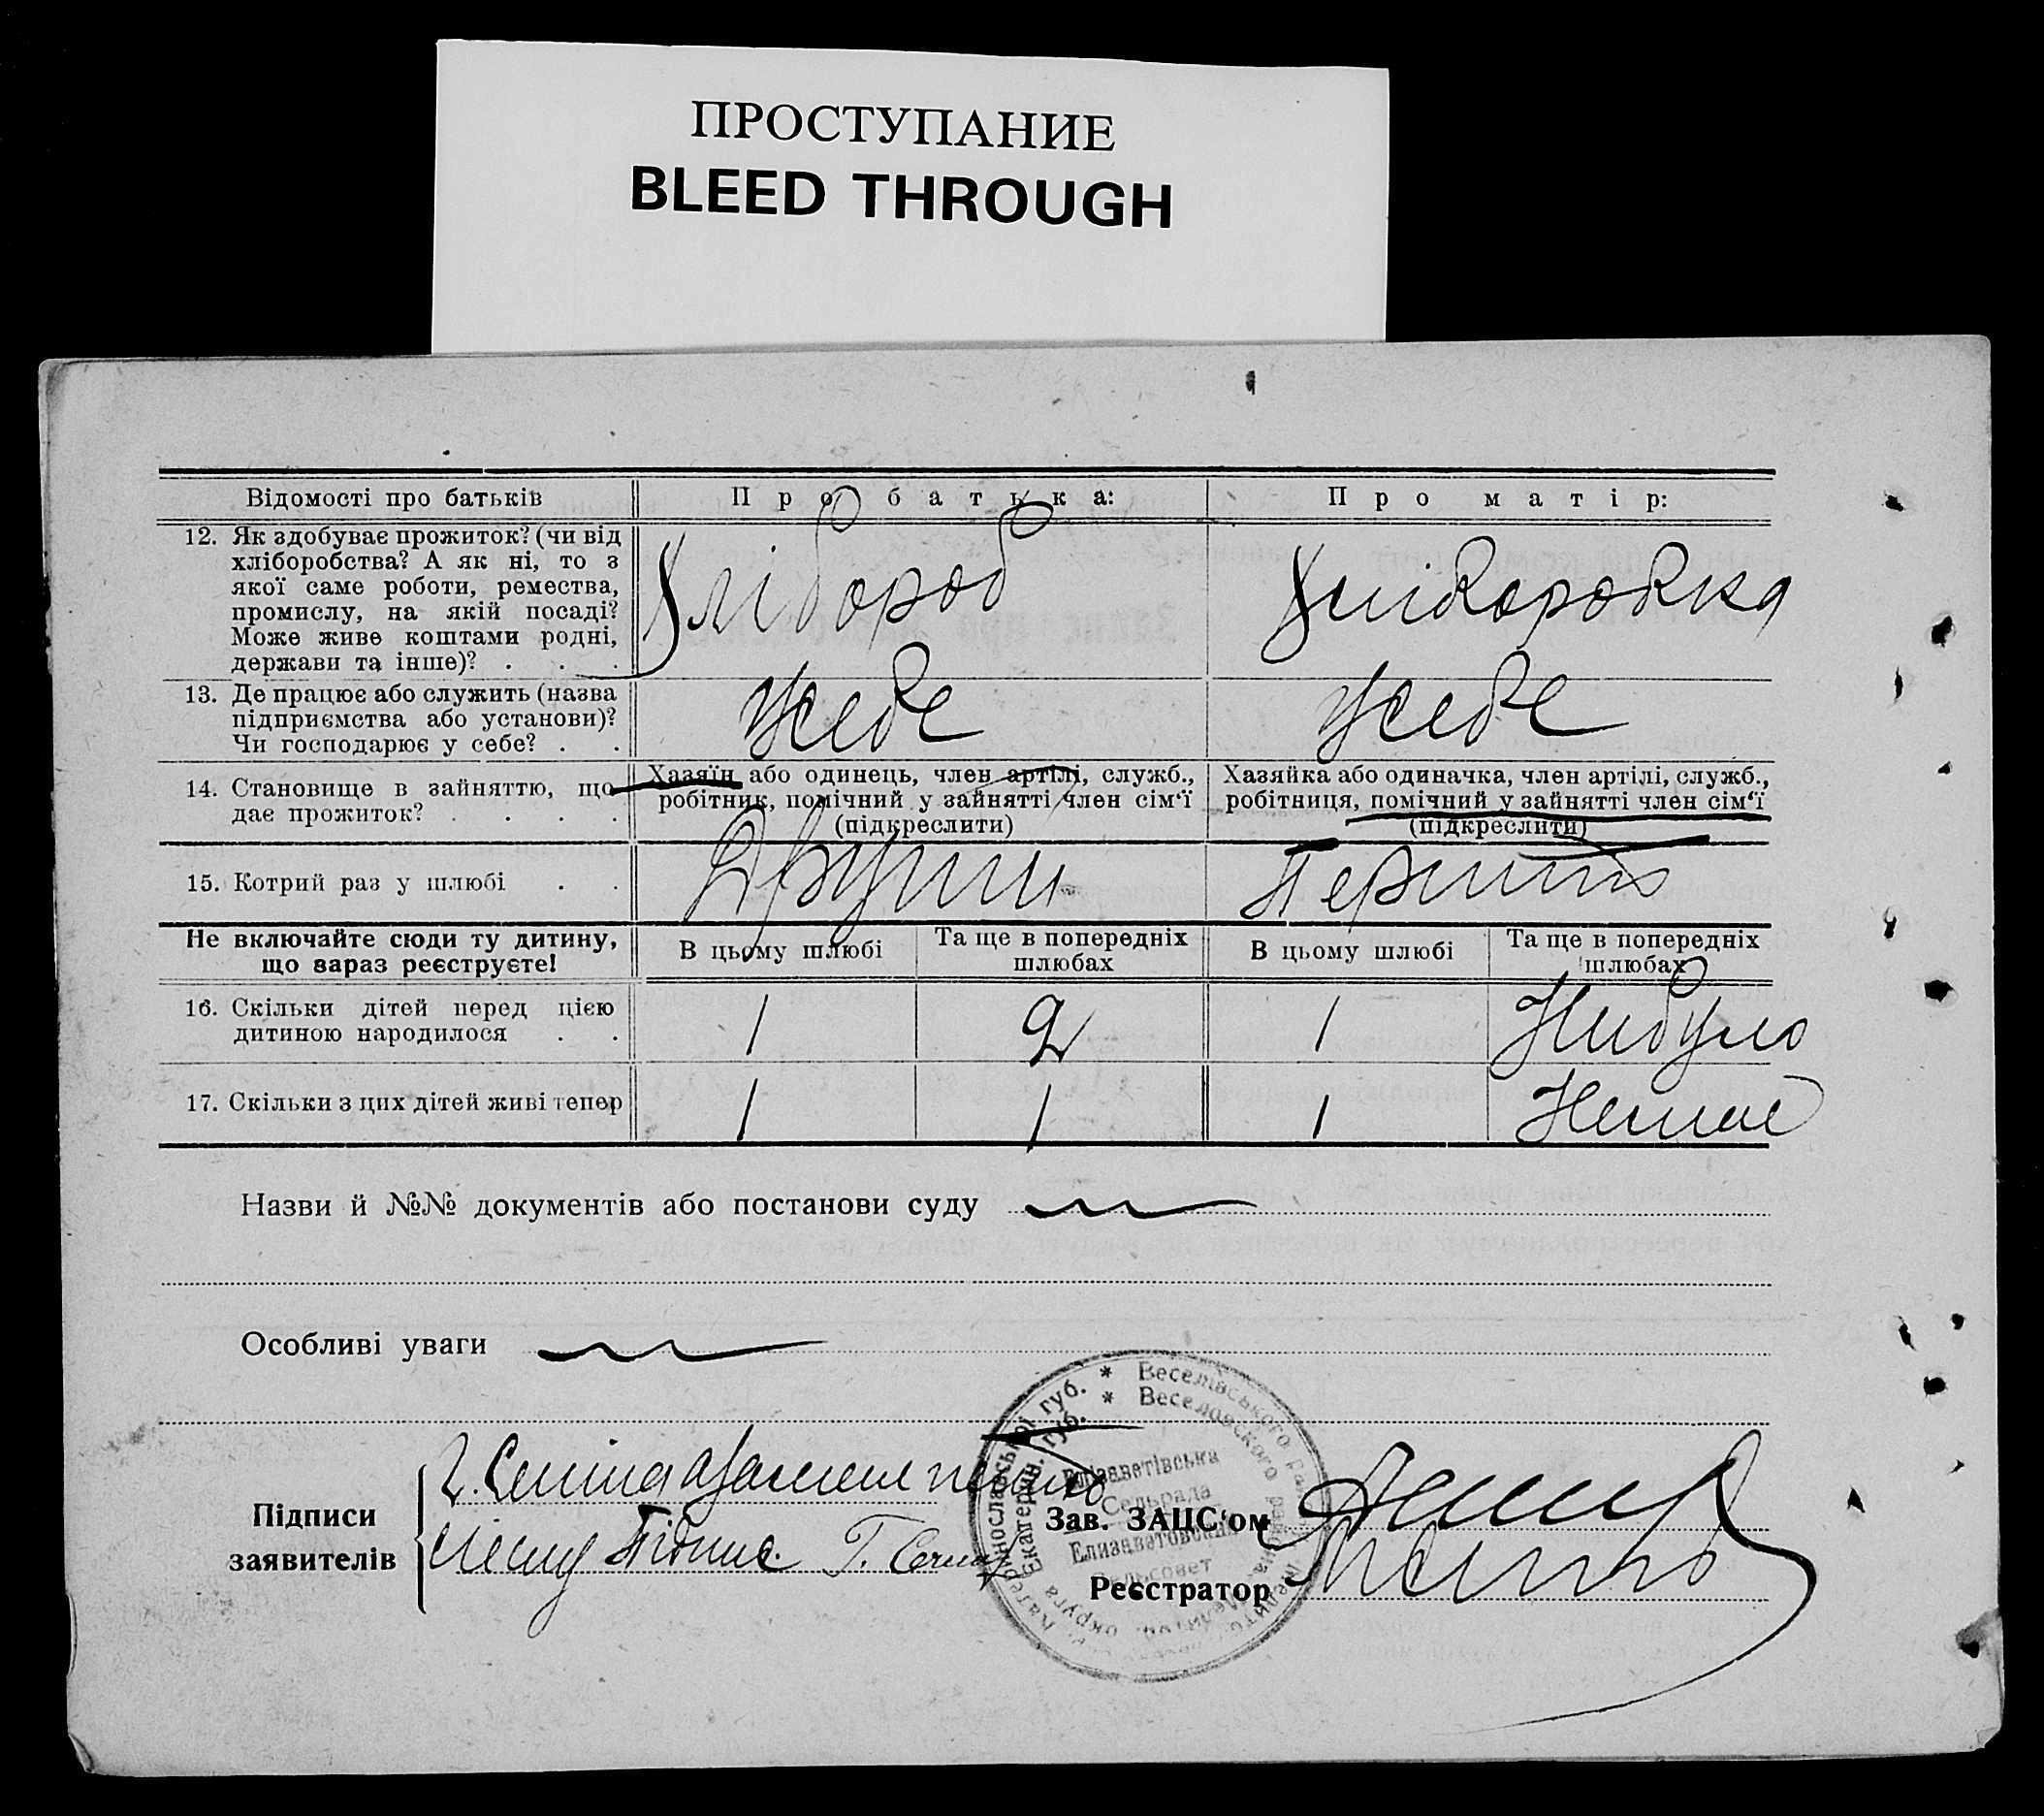 ПРОСТУПАНИЕ
BLEED THROUGH
Відомості про батьків
Про батька:
Про матір:
12. Як здобуває прожиток? (чи від
хліборобства? А як ні, то з
якої саме роботи, ремества,
промислу, на якій посаді?
Може живе коштами родні,
держави та інше)? . . .
Хлібороб
Хліборобка
13. Де працює або служить (назва
підприємства або установи)?
Чи господарює у себе? . .
Усебе
Усебе
14. Становище в зайняттю, що
дає прожиток? . . . .
Хазяїн або одинець, член артілі, служб.,
робітник, помічний у зайнятті член сім‘ї
(підкреслити)
Хазяйка або одиначка, член артілі, служб.,
робітниця, помічний у зайнятті член сім‘ї
(підкреслити)
15. Котрий раз у шлюбі . .
Другий
Не включайте сюди ту дитину,
що зараз реєструєте!
В цьому шлюбі
Та ще в попередніх
шлюбах
В цьому шлюбі
Та ще в попередніх
шлюбах
16. Скільки дітей перед цією
дитиною народилося . .
1
2
1
Нибуло
17. Скільки з цих дітей живі тепер
1
1
1
Немає
Назви й №№ документів або постанови суду
Особливі уваги
Підписи
заявителів
Підпис
Зав. ЗАЦС‘ом
Реєстратор
Катеринославської губ. * Веселівського
Екатерин. губ. * Веселовского района
округа
Елізаветівська
Сельрада
Елизаветовский
Сельсовет